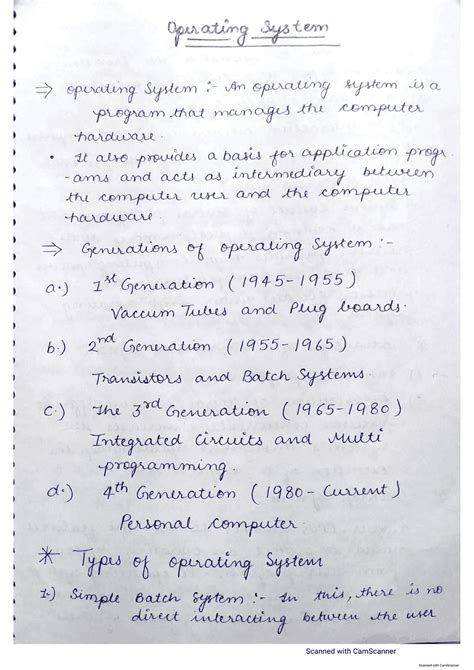 Operating System
⇒ operating System :- An operating system is a
program that manages the computer
hardware.
• It also provides a basis for application progr
-ams and acts as intermediary between
the computer user and the computer
hardware.
⇒ Generations of operating System :-
a.) 1st Generation (1945-1955)
Vaccum Tubes and Plug boards.
b.) 2nd Generation (1955-1965)
Transistors and Batch Systems.
c.) The 3rd Generation (1965-1980)
Integrated Circuits and Multi
programming.
d.) 4th Generation (1980- Current)
Personal Computer.
* Types of operating System
1.) Simple Batch System :- In this, there is no
direct interacting between the user
Scanned with CamScanner
Scanned with CamScanner